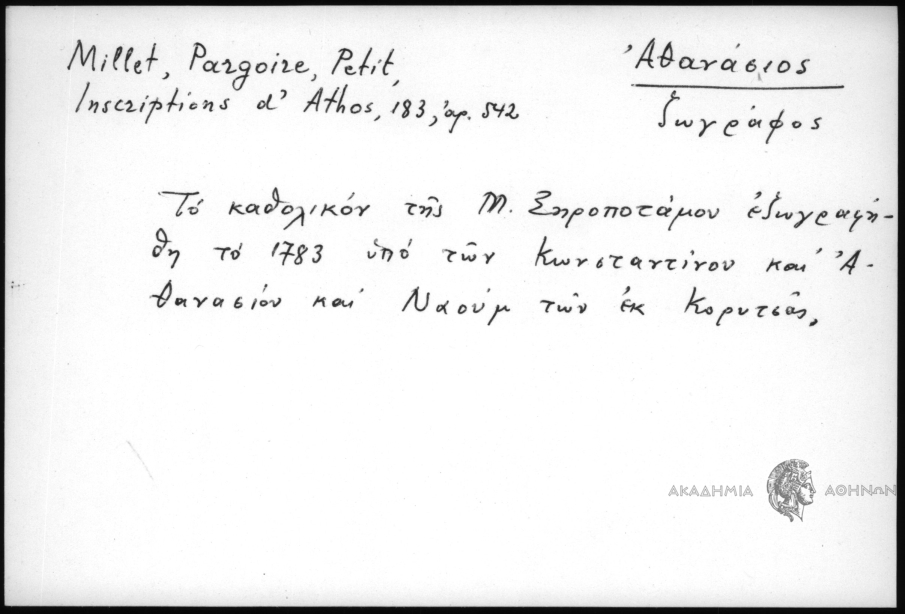 Millet, Pargoire, Petit,
Inscriptions d' Athos, 183, ἀρ. 542
Ἀθανάσιος
ζωγράφος
Τό καθολικόν τῆς Μ. Ξηροποτάμου ἐζωγραφή-
θη τό 1783 ὑπό τῶν Κωνσταντίνου καί Ἀ-
θανασίου καί Ναούμ τῶν ἐκ Κορυτσᾶς.
ΑΚΑΔΗΜΙΑ ΑΘΗΝΩΝ